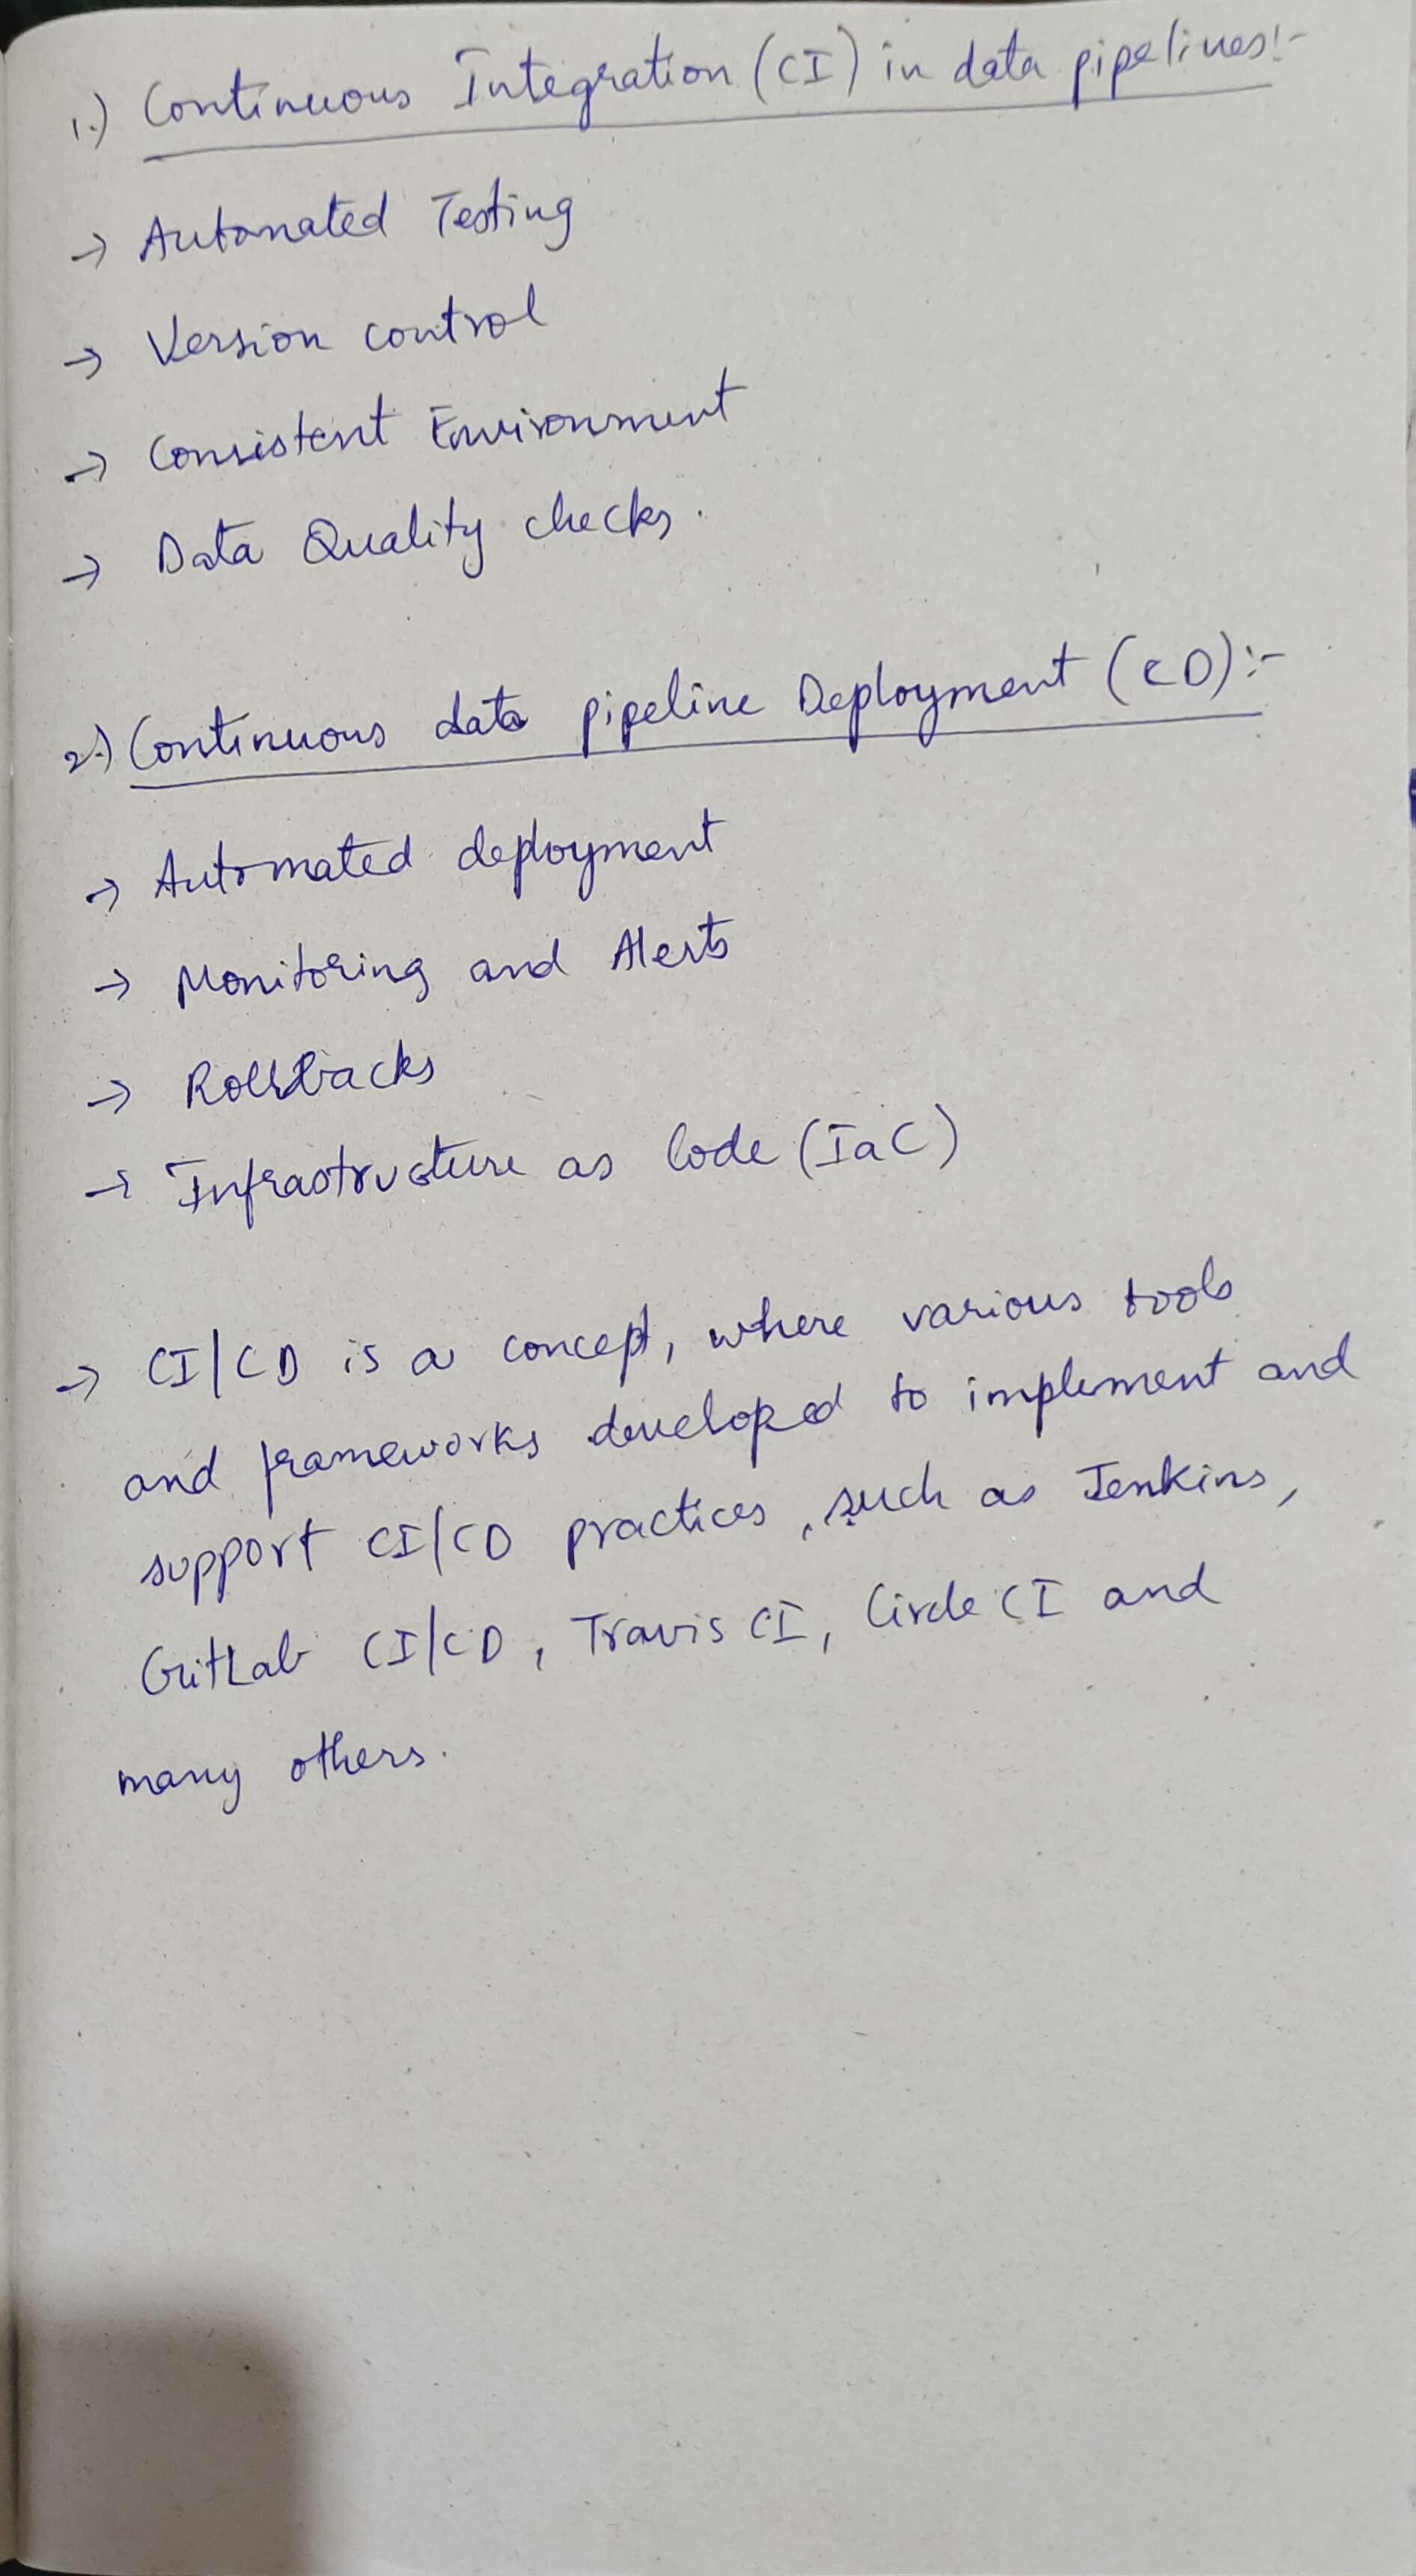 1.) Continuous Integration (CI) in data pipelines:-
→ Automated Testing
→ Version control
→ Consistent Environment
→ Data Quality checks.
2.) Continuous data pipeline Deployment (CD):-
→ Automated deployment
→ Monitoring and Alerts
→ Rollbacks
→ Infrastructure as Code (IaC)
→ CI/CD is a concept, where various tools
and frameworks developed to implement and
support CI/CD practices, such as Jenkins,
GitLab CI/CD, Travis CI, Circle CI and
many others.